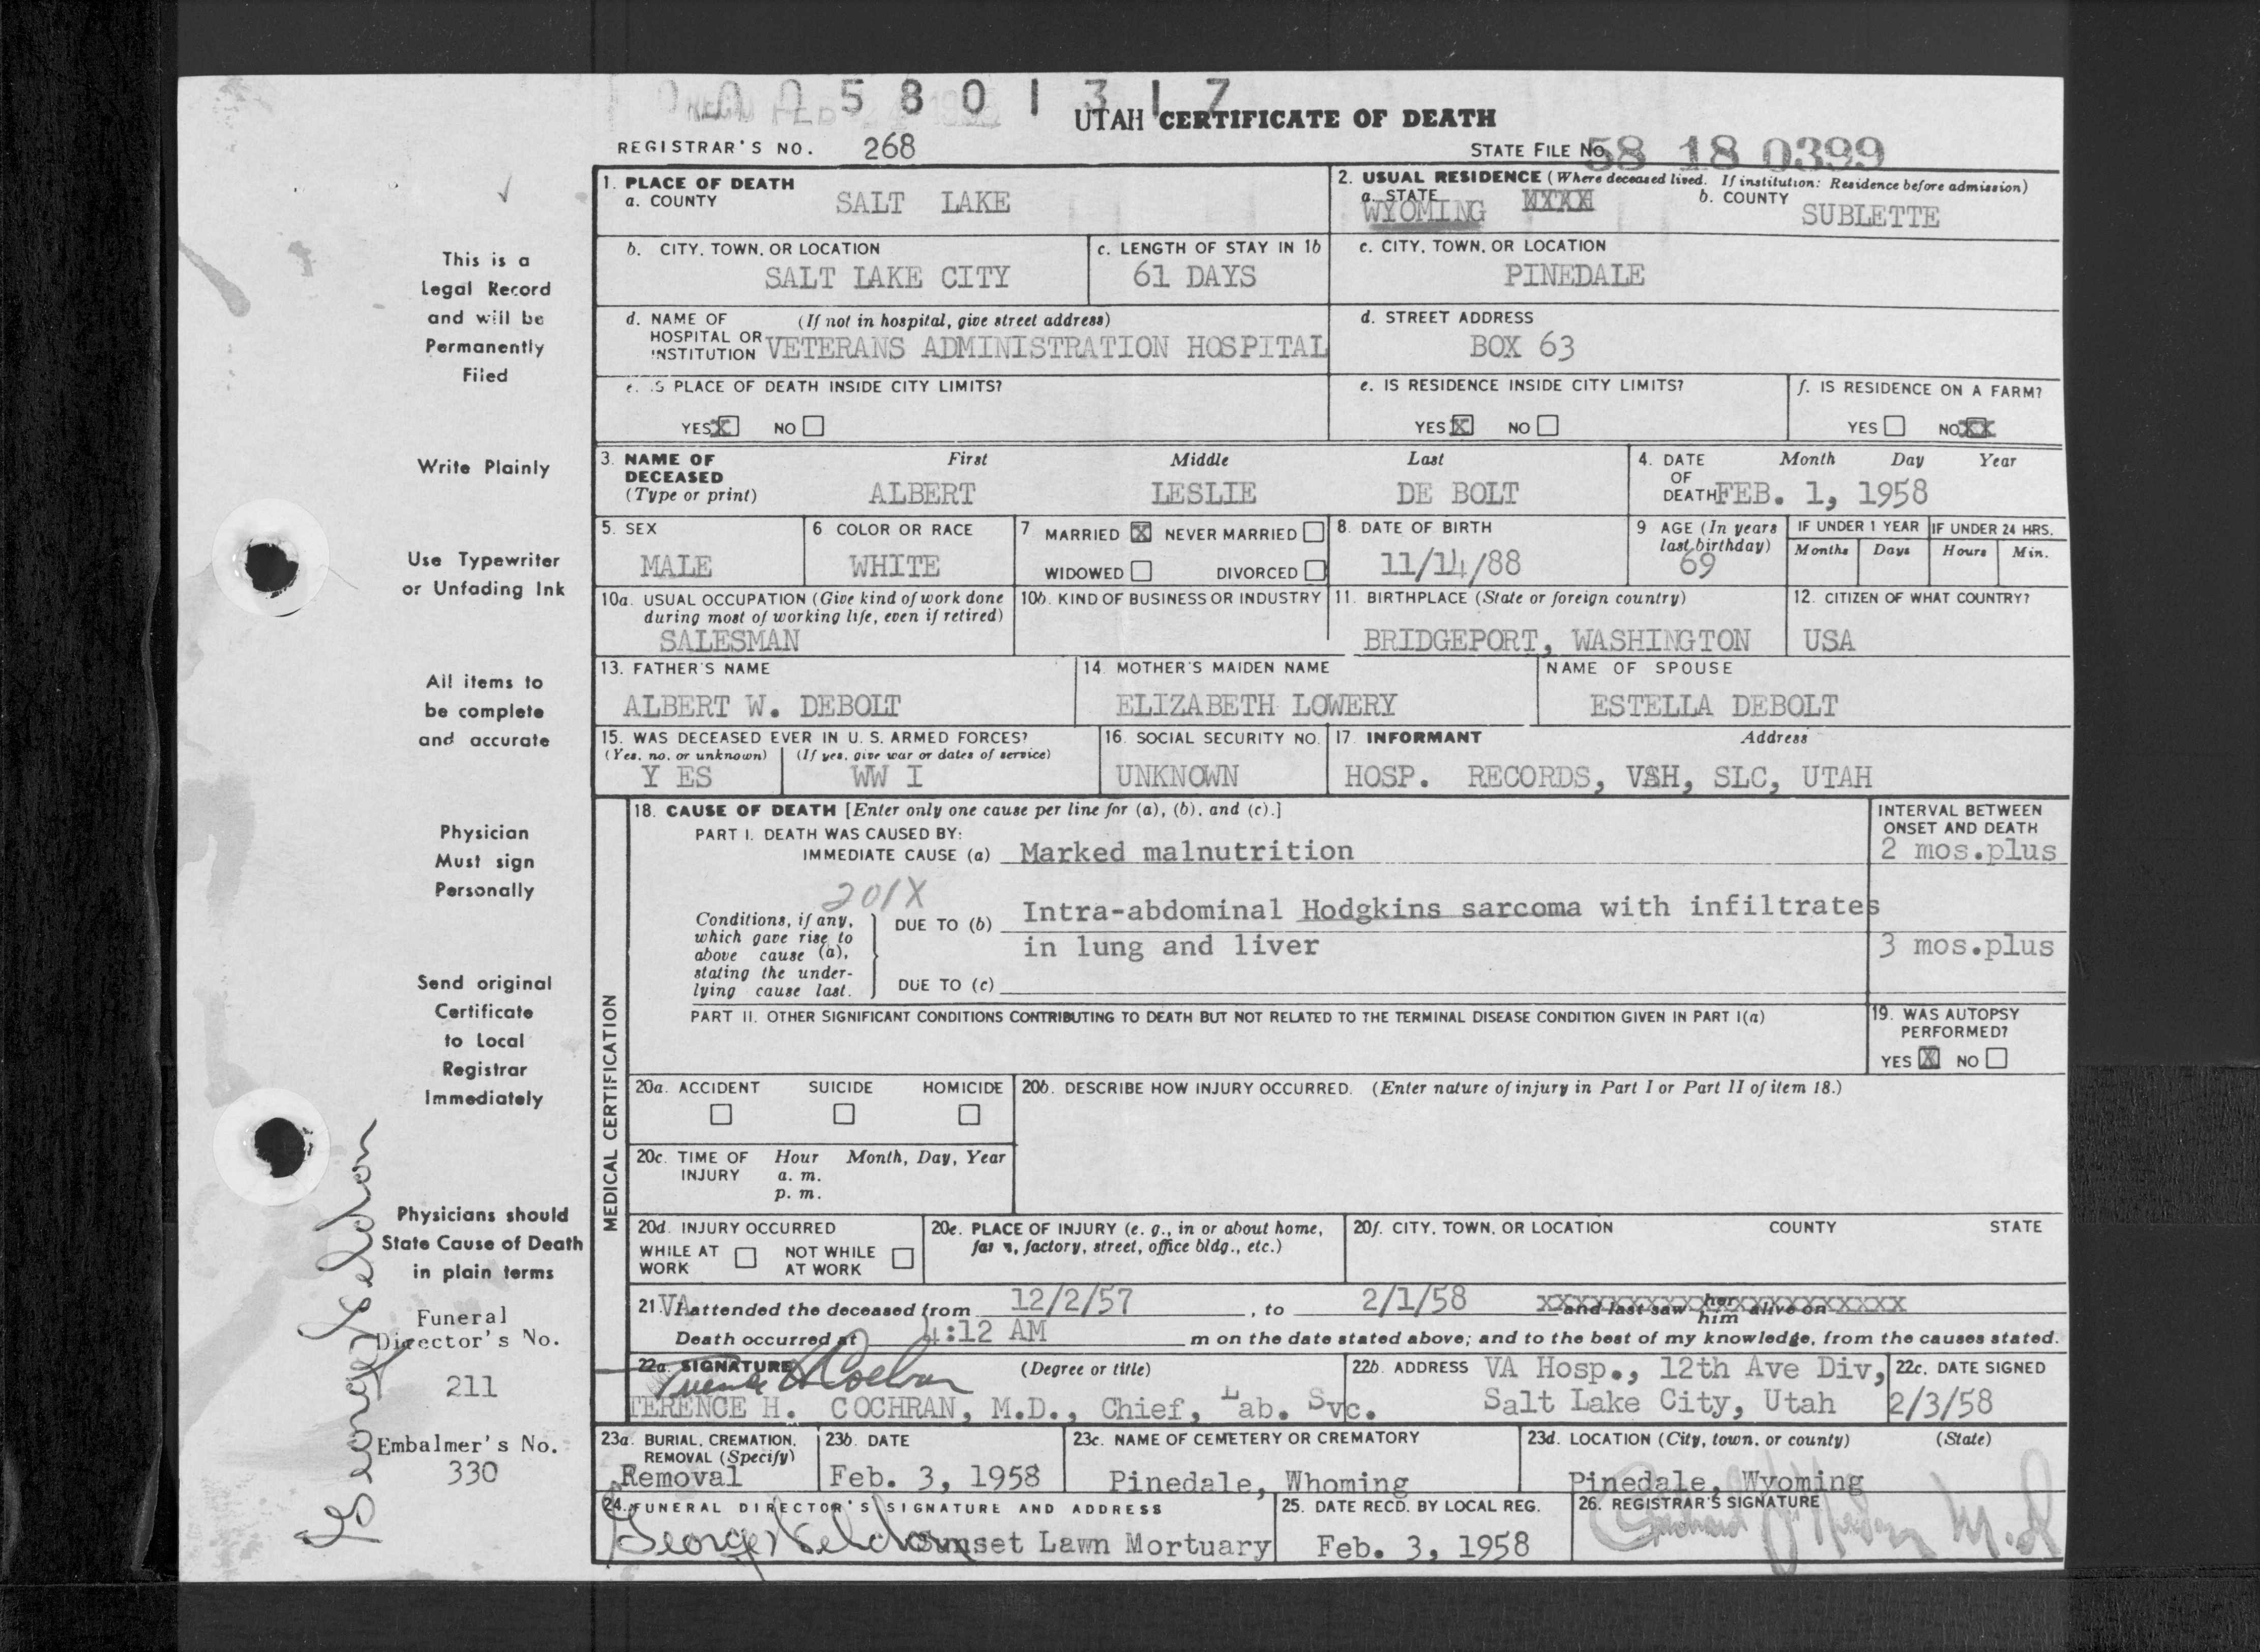 0 0 0 5 8 0 1 3 1 7
REC'D FEB
UTAH CERTIFICATE OF DEATH
REGISTRAR'S NO. 268
STATE FILE NO. 58 18 0399
1. PLACE OF DEATH
a. COUNTY SALT LAKE
2. USUAL RESIDENCE (Where deceased lived. If institution: Residence before admission)
a. STATE WYOMING b. COUNTY SUBLETTE
b. CITY, TOWN, OR LOCATION SALT LAKE CITY
c. LENGTH OF STAY IN 1b 61 DAYS
c. CITY, TOWN, OR LOCATION PINEDALE
d. NAME OF HOSPITAL OR INSTITUTION (If not in hospital, give street address) VETERANS ADMINISTRATION HOSPITAL
d. STREET ADDRESS BOX 63
e. IS PLACE OF DEATH INSIDE CITY LIMITS?
YES X NO
e. IS RESIDENCE INSIDE CITY LIMITS?
YES X NO
f. IS RESIDENCE ON A FARM?
YES NO XX
3. NAME OF DECEASED (Type or print)
First Middle Last
ALBERT LESLIE DE BOLT
4. DATE OF DEATH Month Day Year
FEB. 1, 1958
5. SEX MALE
6 COLOR OR RACE WHITE
7 MARRIED X NEVER MARRIED
WIDOWED DIVORCED
8. DATE OF BIRTH 11/14/88
9 AGE (In years last birthday) 69
IF UNDER 1 YEAR Months Days
IF UNDER 24 HRS. Hours Min.
10a. USUAL OCCUPATION (Give kind of work done during most of working life, even if retired)
SALESMAN
10b. KIND OF BUSINESS OR INDUSTRY
11. BIRTHPLACE (State or foreign country)
BRIDGEPORT, WASHINGTON
12. CITIZEN OF WHAT COUNTRY?
USA
13. FATHER'S NAME
ALBERT W. DEBOLT
14. MOTHER'S MAIDEN NAME
ELIZABETH LOWERY
NAME OF SPOUSE
ESTELLA DEBOLT
15. WAS DECEASED EVER IN U. S. ARMED FORCES?
(Yes, no, or unknown) (If yes, give war or dates of service)
Y ES WW I
16. SOCIAL SECURITY NO.
UNKNOWN
17. INFORMANT Address
HOSP. RECORDS, VAH, SLC, UTAH
MEDICAL CERTIFICATION
18. CAUSE OF DEATH [Enter only one cause per line for (a), (b), and (c).]
PART I. DEATH WAS CAUSED BY:
IMMEDIATE CAUSE (a) Marked malnutrition
INTERVAL BETWEEN ONSET AND DEATH
2 mos.plus
201X
Conditions, if any, which gave rise to above cause (a), stating the underlying cause last.
DUE TO (b) Intra-abdominal Hodgkins sarcoma with infiltrates
in lung and liver 3 mos.plus
DUE TO (c)
PART II. OTHER SIGNIFICANT CONDITIONS CONTRIBUTING TO DEATH BUT NOT RELATED TO THE TERMINAL DISEASE CONDITION GIVEN IN PART I(a)
19. WAS AUTOPSY PERFORMED?
YES X NO
20a. ACCIDENT SUICIDE HOMICIDE
20b. DESCRIBE HOW INJURY OCCURRED. (Enter nature of injury in Part I or Part II of item 18.)
20c. TIME OF INJURY Hour Month, Day, Year
a. m.
p. m.
20d. INJURY OCCURRED
WHILE AT WORK NOT WHILE AT WORK
20e. PLACE OF INJURY (e. g., in or about home, farm, factory, street, office bldg., etc.)
20f. CITY, TOWN, OR LOCATION COUNTY STATE
21. VA attended the deceased from 12/2/57, to 2/1/58 and last saw her him alive on
Death occurred at 4:12 AM m on the date stated above; and to the best of my knowledge, from the causes stated.
22a. SIGNATURE (Degree or title)
Terence H Cochran
TERENCE H. COCHRAN, M.D., Chief, Lab. Svc.
22b. ADDRESS VA Hosp., 12th Ave Div,
Salt Lake City, Utah
22c. DATE SIGNED
2/3/58
23a. BURIAL, CREMATION, REMOVAL (Specify)
Removal
23b. DATE
Feb. 3, 1958
23c. NAME OF CEMETERY OR CREMATORY
Pinedale, Whoming
23d. LOCATION (City, town, or county) (State)
Pinedale, Wyoming
24. FUNERAL DIRECTOR'S SIGNATURE AND ADDRESS
George Seldon Sunset Lawn Mortuary
25. DATE RECD. BY LOCAL REG.
Feb. 3, 1958
26. REGISTRAR'S SIGNATURE
M.D
This is a
Legal Record
and will be
Permanently
Filed
Write Plainly
Use Typewriter
or Unfading Ink
All items to
be complete
and accurate
Physician
Must sign
Personally
Send original
Certificate
to Local
Registrar
Immediately
Physicians should
State Cause of Death
in plain terms
Funeral
Director's No.
211
Embalmer's No.
330
George Seldon